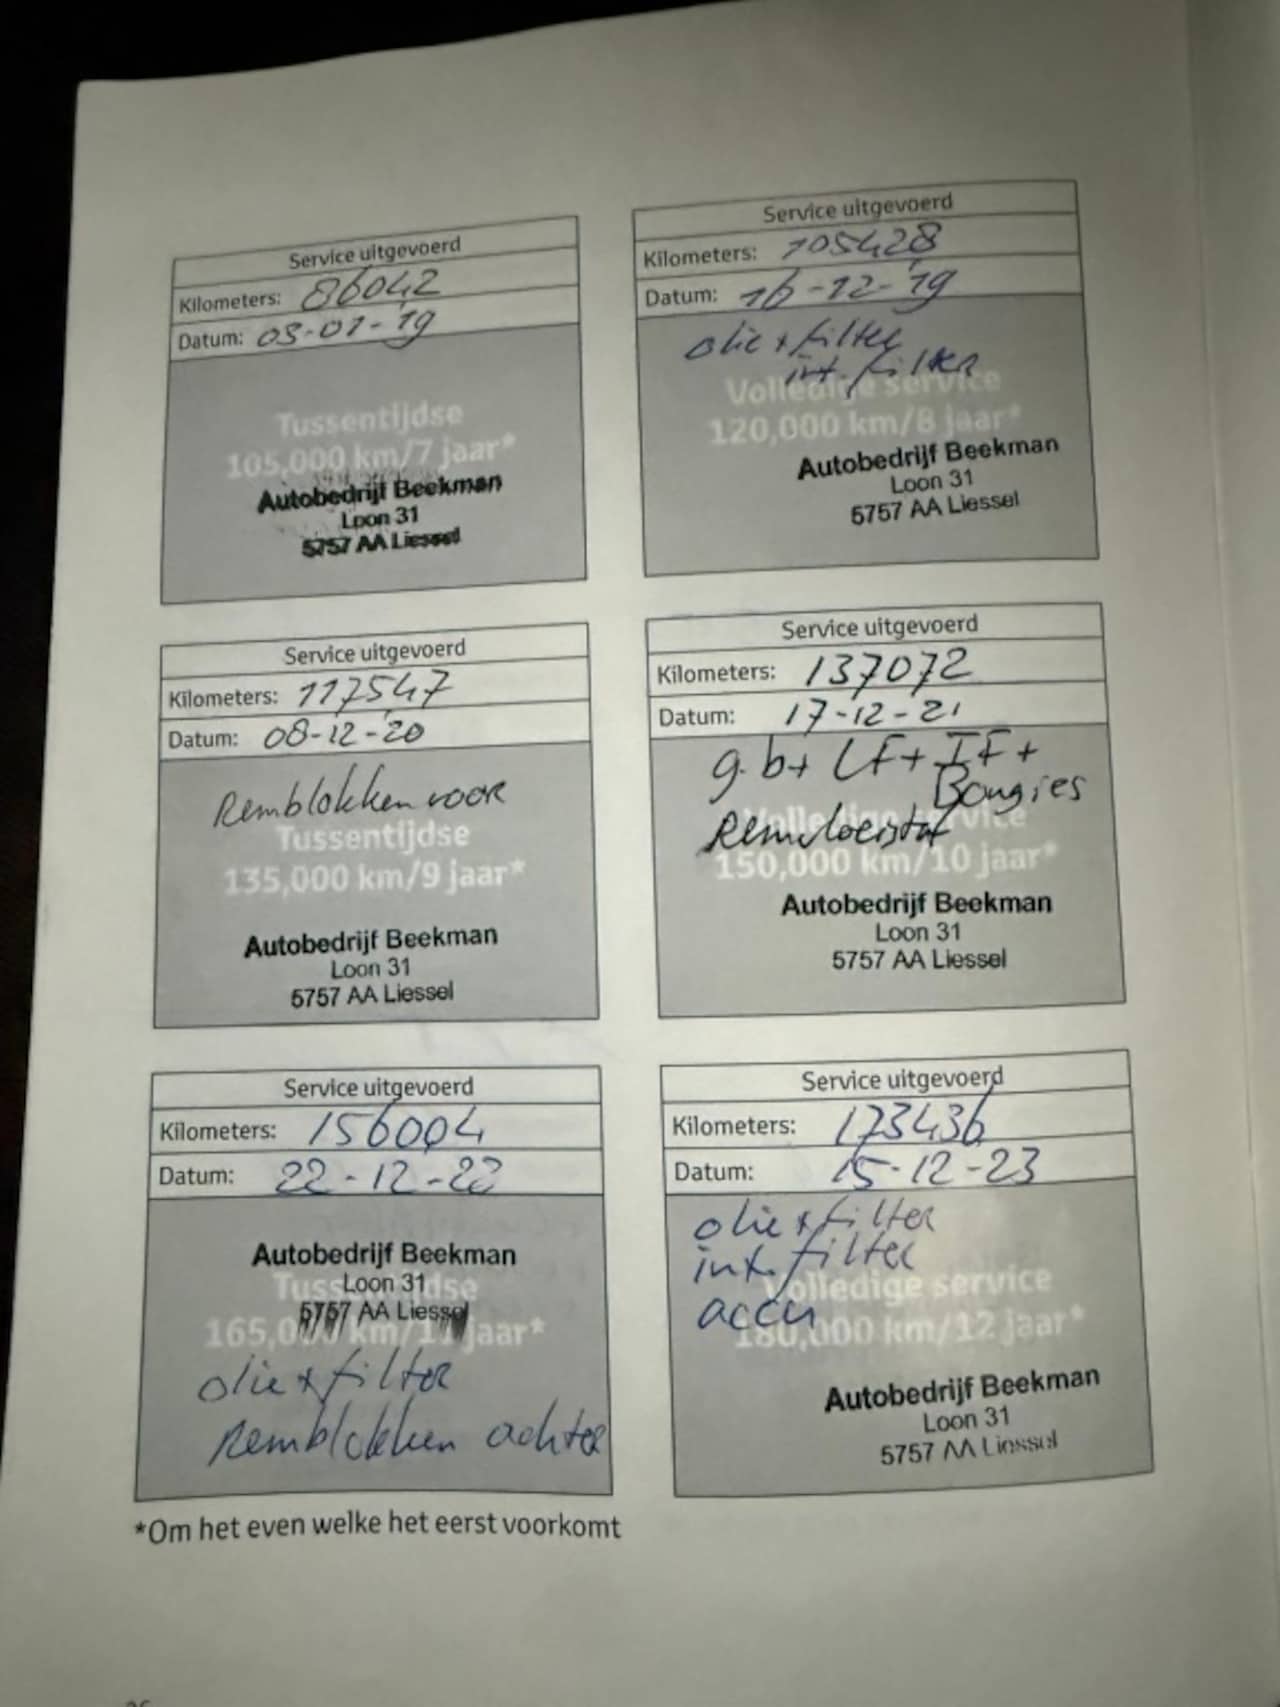 Service uitgevoerd
Kilometers: 86042
Datum: 03-01-'19
Tussentijdse
105,000 km/7 jaar*
Autobedrijf Beekman
Loon 31
5757 AA Liessel
Service uitgevoerd
Kilometers: 105428
Datum: 16-12-'19
olie + filter
int. filter
Volledige service
120,000 km/8 jaar*
Autobedrijf Beekman
Loon 31
5757 AA Liessel
Service uitgevoerd
Kilometers: 117547
Datum: 08-12-'20
Remblokken voor
Tussentijdse
135,000 km/9 jaar*
Autobedrijf Beekman
Loon 31
5757 AA Liessel
Service uitgevoerd
Kilometers: 137072
Datum: 17-12-21
g.b+ LF+ IF+
Bougies
Remvloeistof
Volledige service
150,000 km/10 jaar*
Autobedrijf Beekman
Loon 31
5757 AA Liessel
Service uitgevoerd
Kilometers: 156004
Datum: 22-12-22
Autobedrijf Beekman
Tussentijdse
Loon 31
5757 AA Liessel
165,000 km/11 jaar*
olie + filter
Remblokken achter
Service uitgevoerd
Kilometers: 173436
Datum: 15-12-23
olie + filter
int. filter
Volledige service
accu
180,000 km/12 jaar*
Autobedrijf Beekman
Loon 31
5757 AA Liessel
*Om het even welke het eerst voorkomt